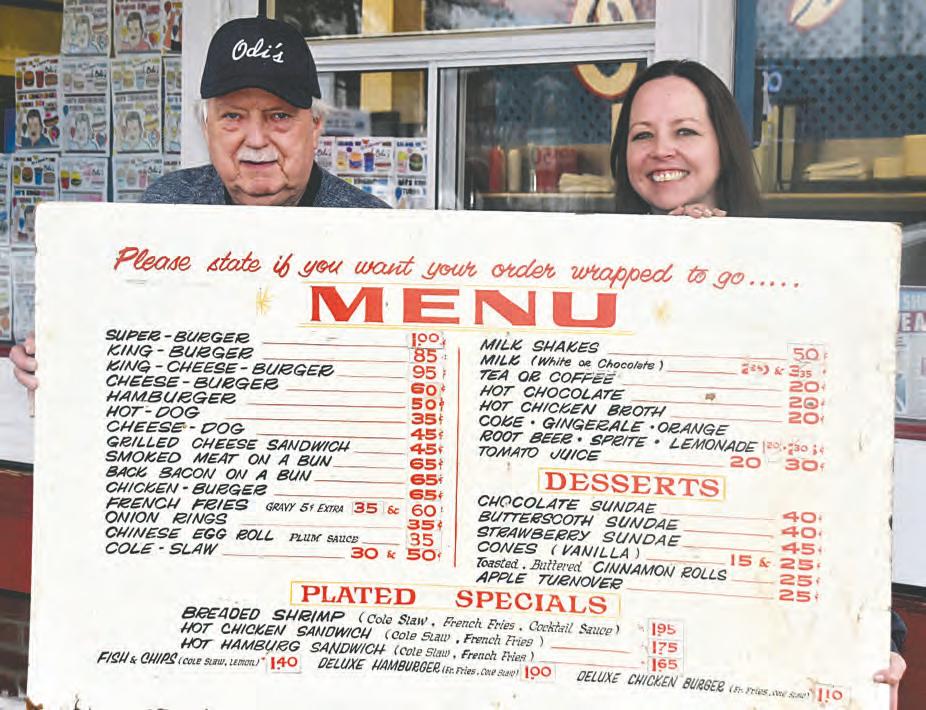 Odi's
Please state if you want your order wrapped to go.....
MENU
SUPER-BURGER 1.00
KING-BURGER 85¢
KING-CHEESE-BURGER 95¢
CHEESE-BURGER 60¢
HAMBURGER 50¢
HOT-DOG 35¢
CHEESE-DOG 45¢
GRILLED CHEESE SANDWICH 45¢
SMOKED MEAT ON A BUN 65¢
BACK BACON ON A BUN 65¢
CHICKEN-BURGER 65¢
FRENCH FRIES GRAVY 5¢ EXTRA 35 & 60
ONION RINGS 35¢
CHINESE EGG ROLL PLUM SAUCE 35
COLE-SLAW 30 & 50¢
MILK SHAKES 50¢
MILK (White or Chocolate)
TEA OR COFFEE 20¢
HOT CHOCOLATE 20¢
HOT CHICKEN BROTH 20¢
COKE • GINGERALE • ORANGE
ROOT BEER • SPRITE • LEMONADE
TOMATO JUICE 20 30¢
DESSERTS
CHOCOLATE SUNDAE 40¢
BUTTERSCOTH SUNDAE 40¢
STRAWBERRY SUNDAE 45¢
CONES (VANILLA) 15 & 25¢
Toasted, Buttered CINNAMON ROLLS 25¢
APPLE TURNOVER 25¢
PLATED SPECIALS
BREADED SHRIMP (Cole Slaw, French Fries, Cocktail Sauce) 1.95
HOT CHICKEN SANDWICH (Cole Slaw, French Fries) 1.75
HOT HAMBURG SANDWICH (Cole Slaw, French Fries) 1.65
FISH & CHIPS (COLE SLAW, LEMON) 1.40 DELUXE HAMBURGER (Fr. Fries, Cole Slaw) 1.00 DELUXE CHICKEN BURGER (Fr. Fries, Cole Slaw) 1.10